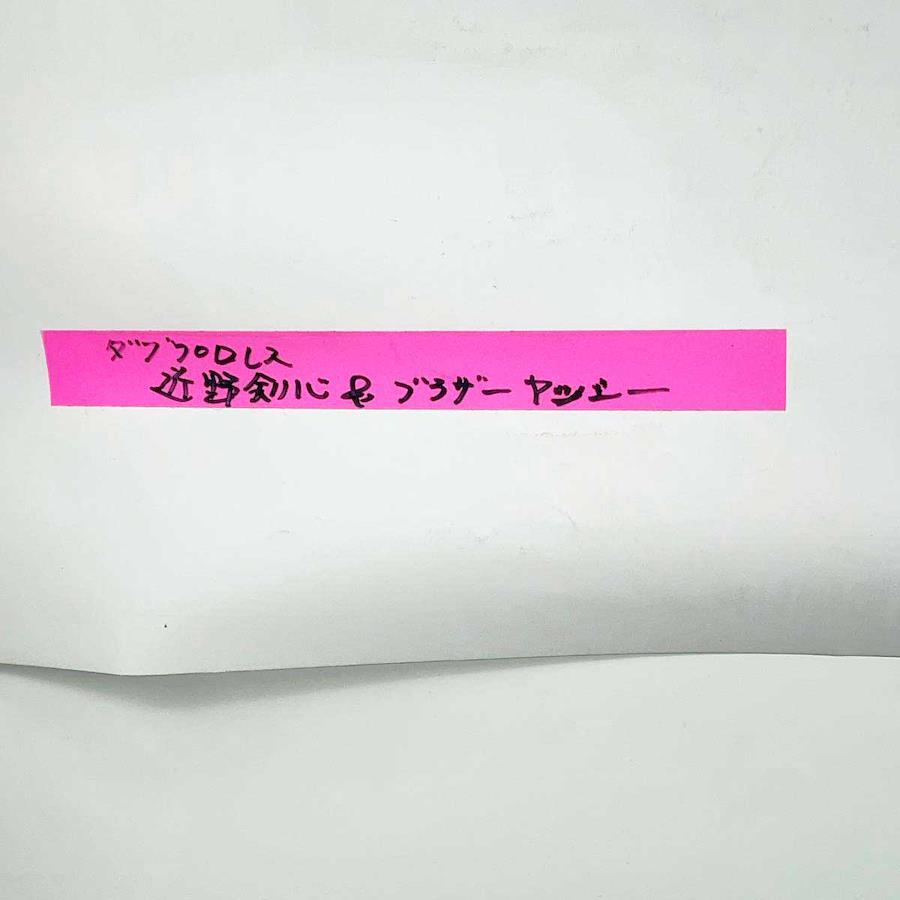 ダブプロレス
近野剣心&ブラザーヤッシー